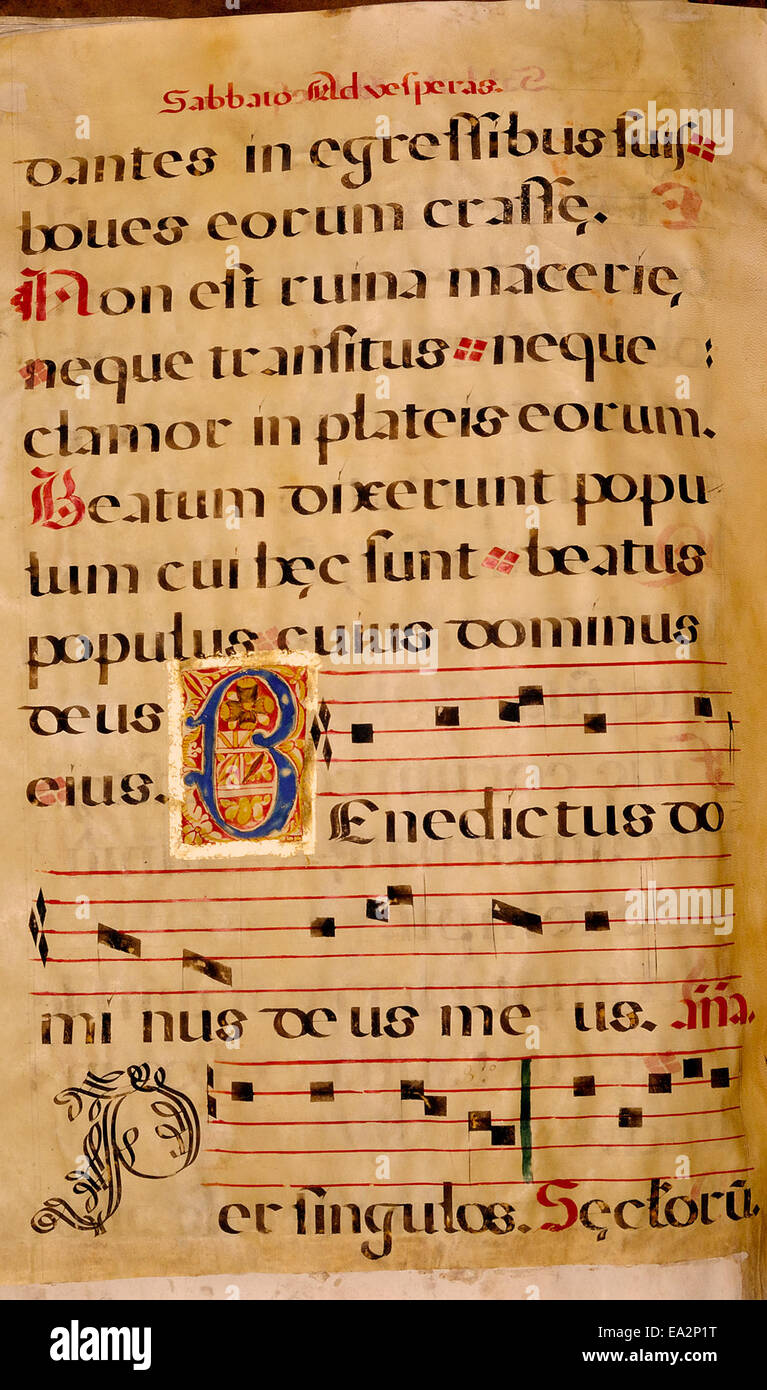 Sabbato Ad vesperas.
dantes in egressibus suis
boves eorum crassę.
Non est ruina macerię,
neque transitus neque :
clamor in plateis eorum.
Beatum dixerunt popu
lum cui hęc sunt beatus
populus cuius dominus
deus
eius.
BEnedictus do
mi nus deus me us. aña.
Per singulos. Sęctorū.
alamy
alamy
Image ID: EA2P1T
www.alamy.com